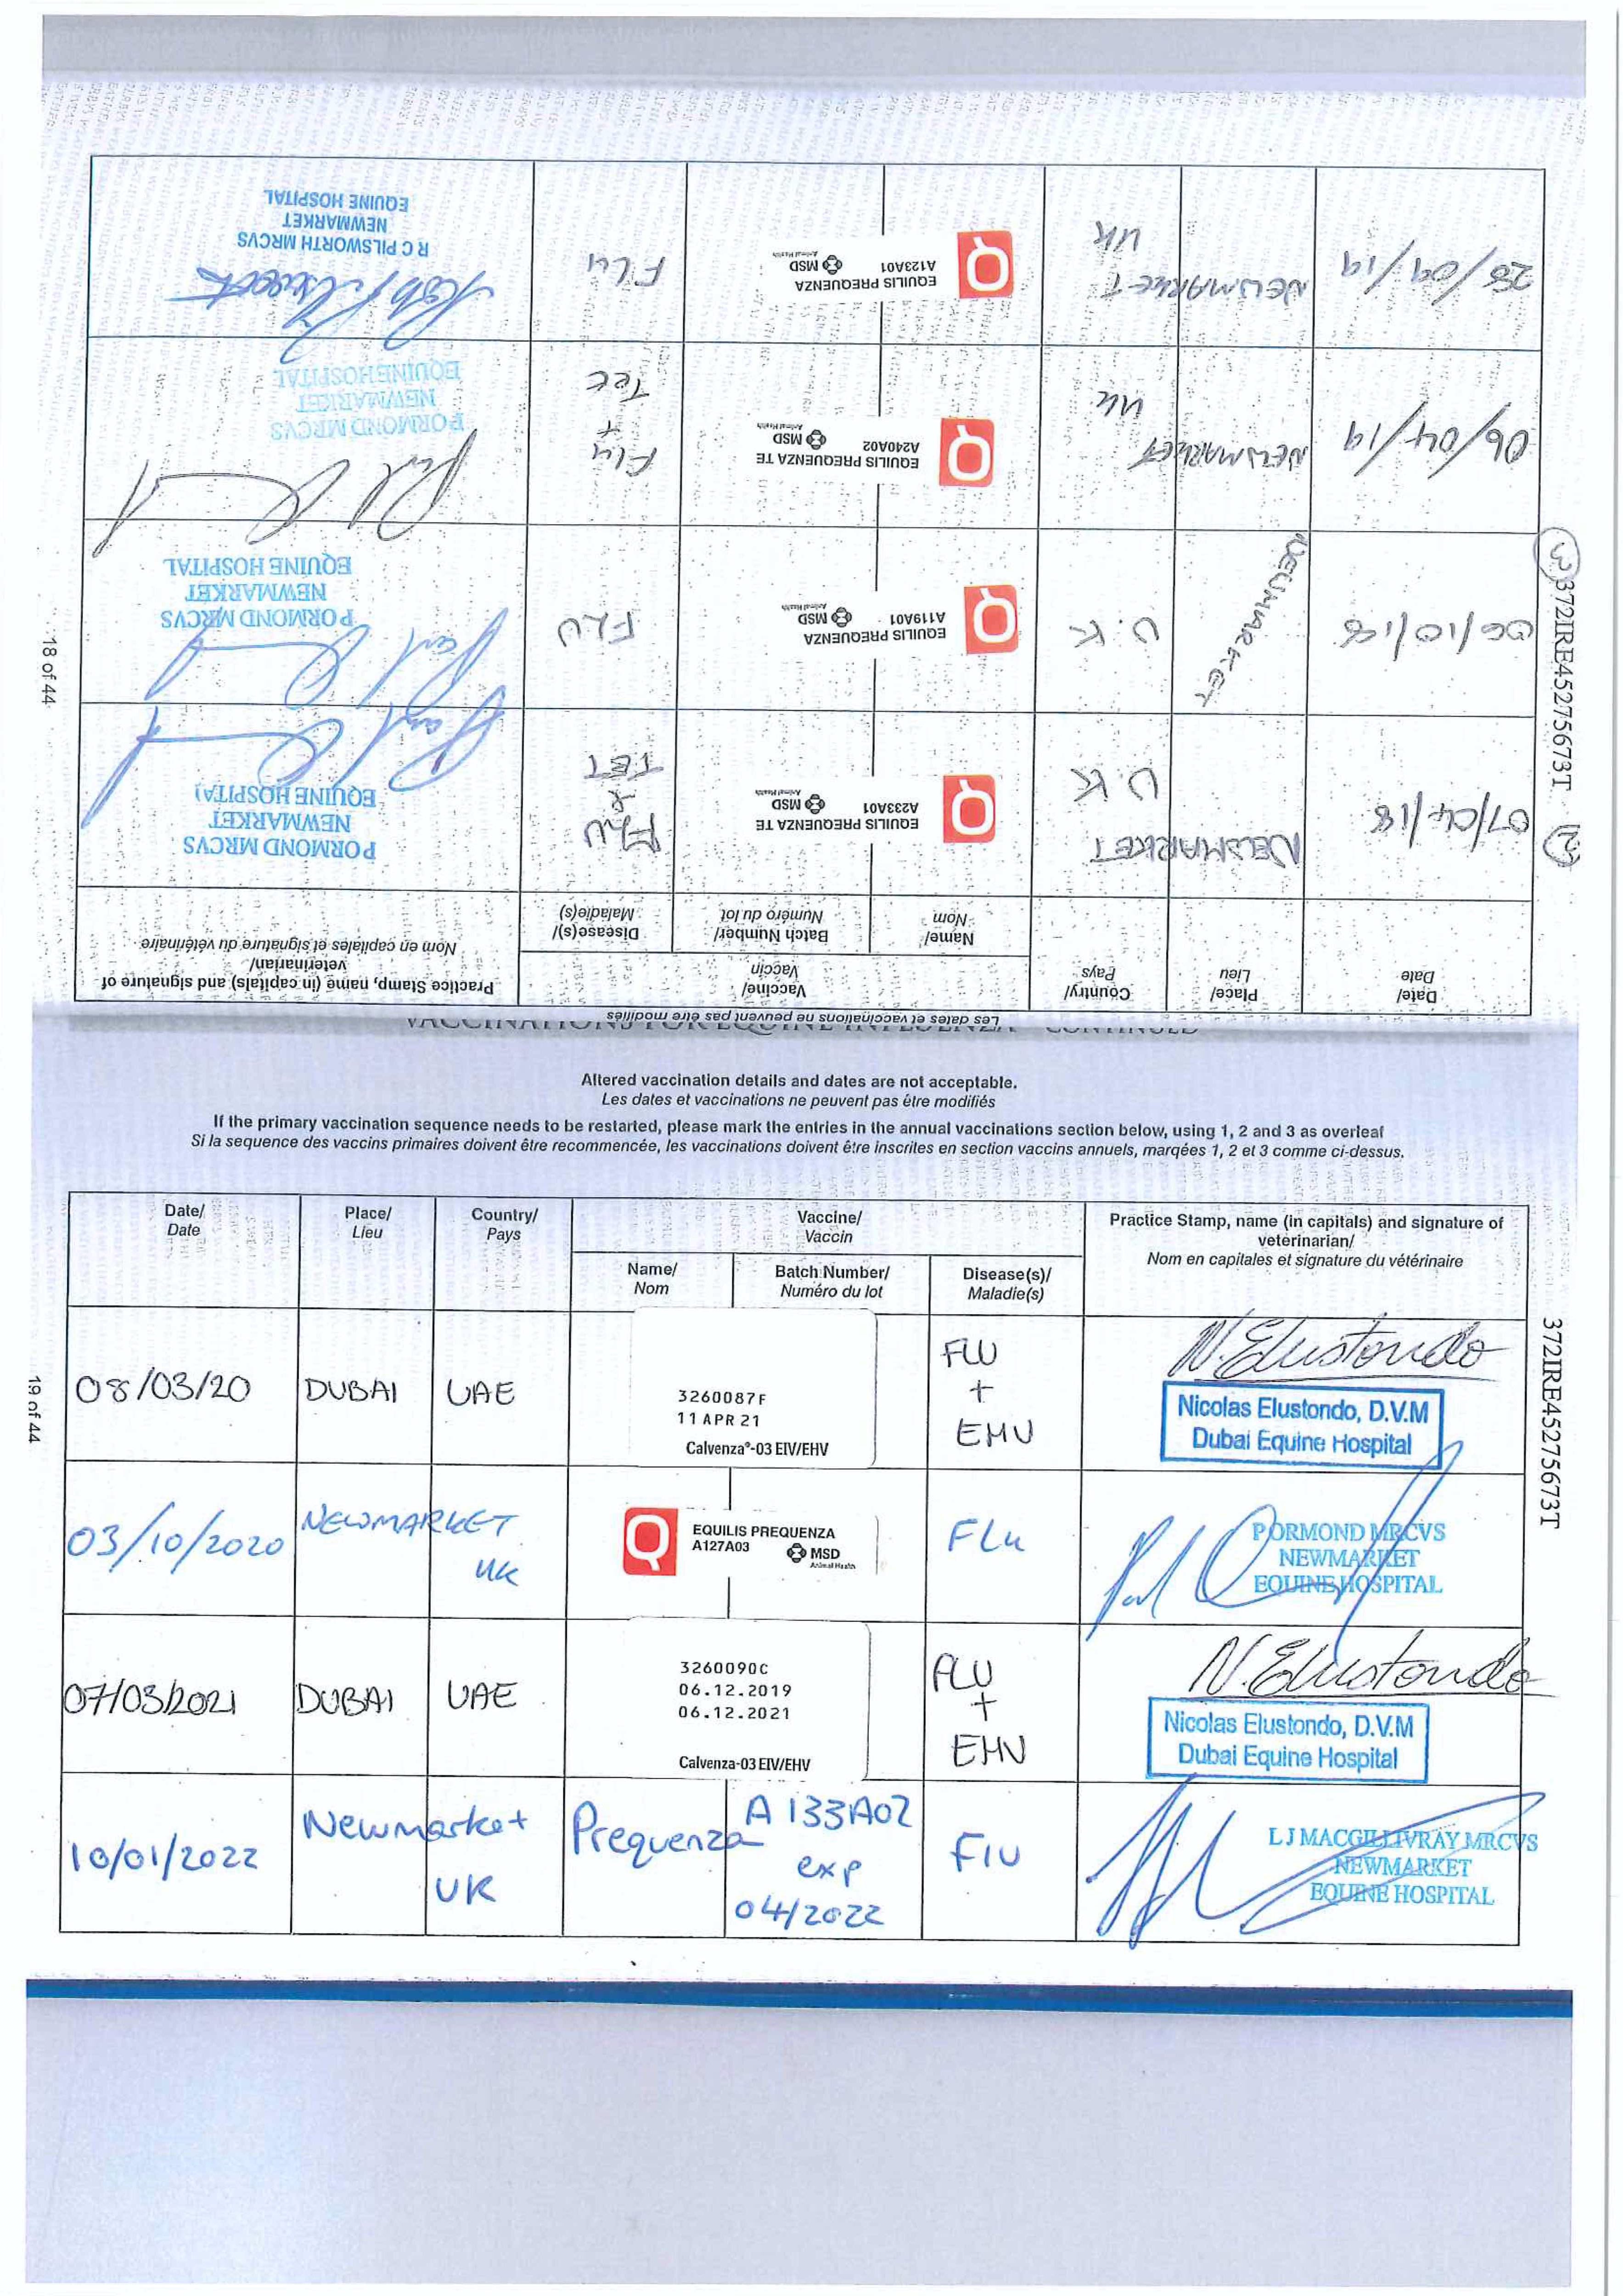 VACCINATIONS FOR EQUINE INFLUENZA - CONTINUED
Les dates et vaccinations ne peuvent pas être modifiés
Date/
Date
Place/
Lieu
Country/
Pays
Vaccine/
Vaccin
Name/
Nom
Batch Number/
Numéro du lot
Disease(s)/
Maladie(s)
Practice Stamp, name (in capitals) and signature of
veterinarian/
Nom en capitales et signature du vétérinaire
07/04/18
NEWMARKET
U.K
EQUILIS PREQUENZA TE
A233A01
MSD
Animal Health
FLU
&
TET
PORMOND MRCVS
NEWMARKET
EQUINE HOSPITAL
06/10/18
NEWMARKET
U.K
EQUILIS PREQUENZA
A119A01
MSD
Animal Health
FLU
PORMOND MRCVS
NEWMARKET
EQUINE HOSPITAL
06/04/19
NEWMARKET
UK
EQUILIS PREQUENZA TE
A240A02
MSD
Animal Health
FLU
+
TET
PORMOND MRCVS
NEWMARKET
EQUINE HOSPITAL
28/09/19
NEWMARKET
UK
EQUILIS PREQUENZA
A123A01
MSD
Animal Health
FLU
R C PILSWORTH MRCVS
NEWMARKET
EQUINE HOSPITAL
18 of 44
2
372IRE45275673T
3
Altered vaccination details and dates are not acceptable.
Les dates et vaccinations ne peuvent pas être modifiés
If the primary vaccination sequence needs to be restarted, please mark the entries in the annual vaccinations section below, using 1, 2 and 3 as overleaf
Si la sequence des vaccins primaires doivent être recommencée, les vaccinations doivent être inscrites en section vaccins annuels, marqées 1, 2 et 3 comme ci-dessus.
Date/
Date
Place/
Lieu
Country/
Pays
Vaccine/
Vaccin
Name/
Nom
Batch Number/
Numéro du lot
Disease(s)/
Maladie(s)
Practice Stamp, name (in capitals) and signature of
veterinarian/
Nom en capitales et signature du vétérinaire
08/03/20
DUBAI
UAE
3260087F
11 APR 21
Calvenza®-03 EIV/EHV
FLU
+
EHV
N. Elustondo
Nicolas Elustondo, D.V.M
Dubai Equine Hospital
03/10/2020
NEWMARKET
UK
EQUILIS PREQUENZA
A127A03
MSD
Animal Health
FLu
PORMOND MRCVS
NEWMARKET
EQUINE HOSPITAL
07/03/2021
DUBAI
UAE
3260090C
06.12.2019
06.12.2021
Calvenza-03 EIV/EHV
FLU
+
EHV
N. Elustondo
Nicolas Elustondo, D.V.M
Dubai Equine Hospital
10/01/2022
Newmarket
UK
Prequenza
A133A02
exp
04/2022
Flu
L J MACGILLIVRAY MRCVS
NEWMARKET
EQUINE HOSPITAL
19 of 44
372IRE45275673T